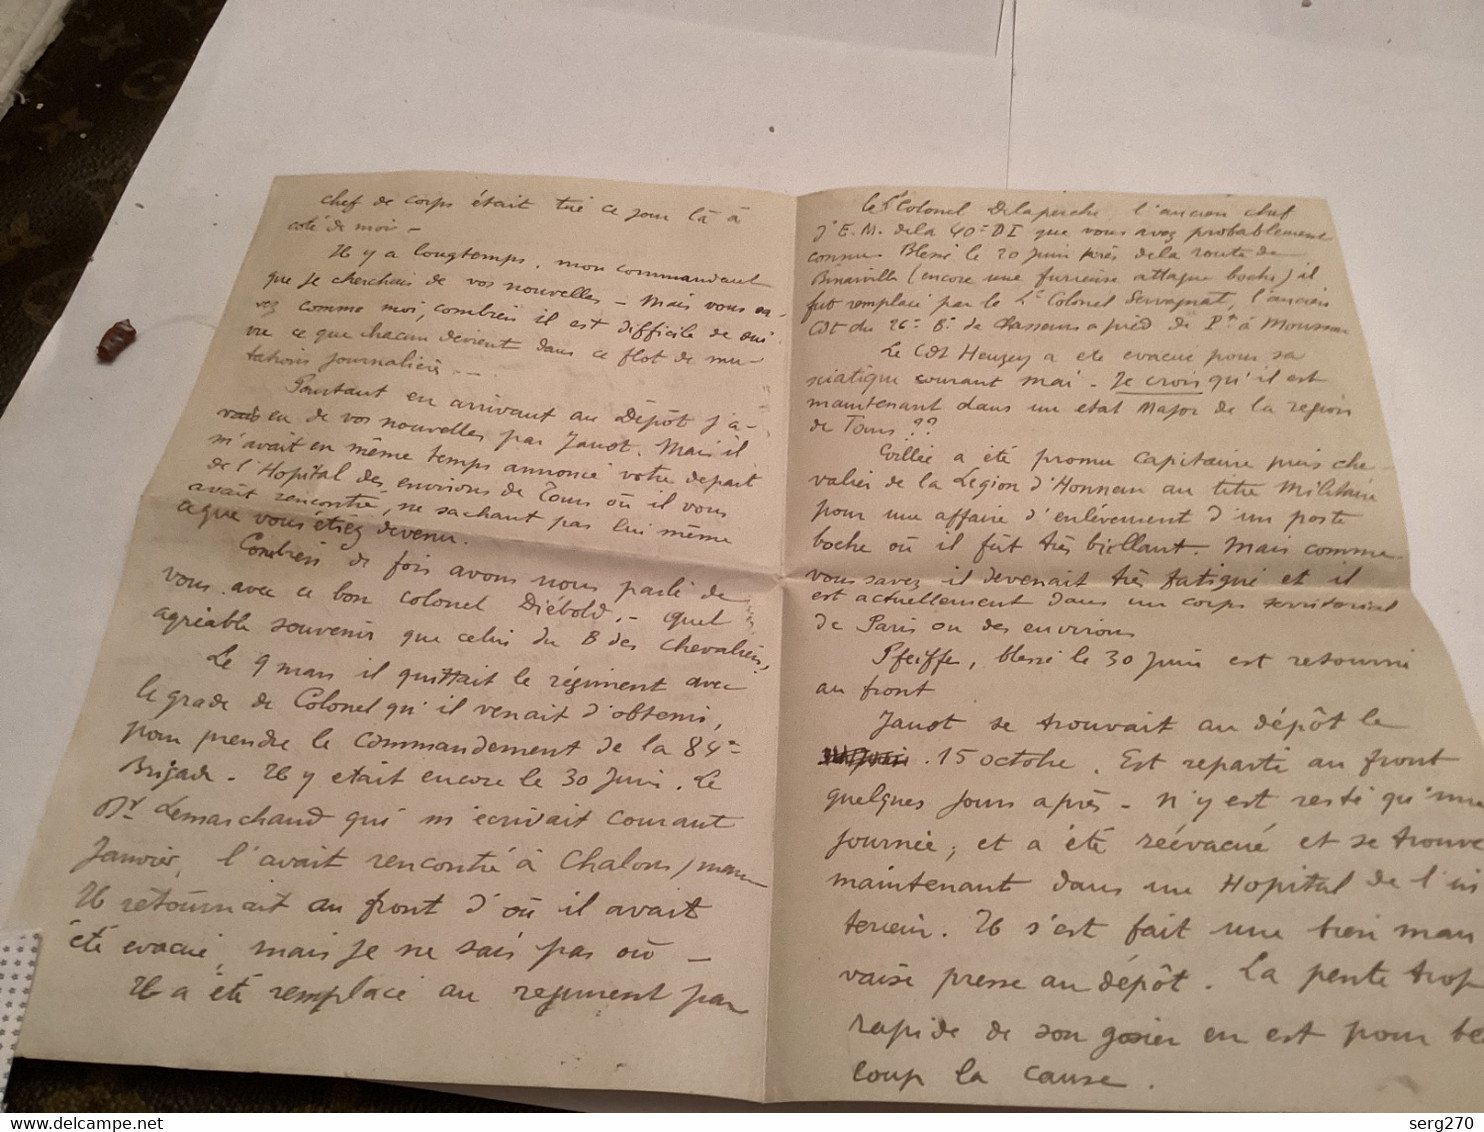 chef de corps était tué ce jour là à
coté de moi -
Il y a longtemps, mon commandant
que je cherchais de vos nouvelles - Mais vous sa-
vez comme moi, combien il est difficile de sui-
vre ce que chacun devient dans ce flot de mu-
tations journalière --
Pourtant en arrivant au Dépôt j'a-
vais eu de vos nouvelles par Janot. Mais il
m'avait en même temps annoncé votre depart
de l'Hopital des environs de Tours où il vous
avait rencontré, ne sachant pas lui même
ce que vous étiez devenu.
Combien de fois avons nous parlé de
vous avec ce bon colonel Diébold. - quel
agréable souvenir que celui du B des Chevaliers,
Le 9 mars il quittait le régiment avec
le grade de Colonel qu'il venait d'obtenir,
pour prendre le commandement de la 84e
Brigade. Il y etait encore le 30 Juin. Le
Dr Lemarchand qui m'écrivait courant
Janvier, l'avait rencontré à Chalons/marne
Il retournait au front d'où il avait
été evacué, mais je ne sais pas où -
Il a été remplacé au regiment par
le Lt Colonel Delaperche, l'ancien chef
d'E.M. de la 40e DI que vous avez probablement
connu. Blessé le 20 Juin près de la route de
Binarville (encore une furieuse attaque boche) il
fut remplacé par le Lt Colonel Servagnat, l'ancien
Cdt du 26e B. de Chasseurs a pied de Pt à Mousson
Le Cdt Heuzey a été evacué pour sa
sciatique courant mai - Je crois qu'il est
maintenant dans un etat Major de la region
de Tours ??
Grillée a été promu Capitaine puis che-
valier de la Légion d'Honneur au titre Militaire
pour une affaire d'enlèvement d'un poste
boche où il fût très brillant. Mais comme
vous savez il devenait très fatigué et il
est actuellement dans un corps territorial
de Paris ou des environs
Pfeiffe, blessé le 30 Juin est retourné
au front
Janot se trouvait au dépôt le
15 octobre. Est reparti au front
quelques jours après - N'y est resté qu'une
journée, et a été reévacué et se trouve
maintenant dans un Hopital de l'in
terieur. Il s'est fait une bien mau
vaise presse au dépôt. La pente trop
rapide de son gosier en est pour be
coup la cause.
serg270